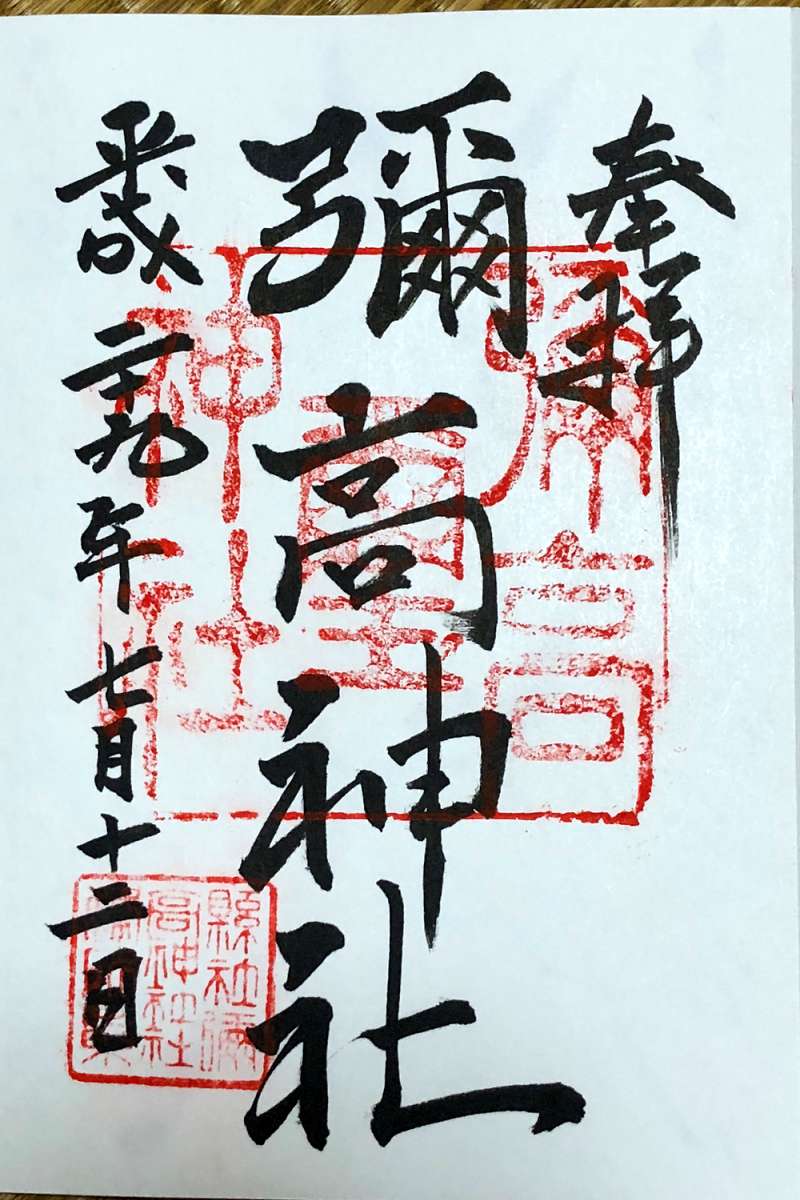 奉拜
彌高神社
平成二十九年七月十二日
彌高
神社
縣社彌
高神社